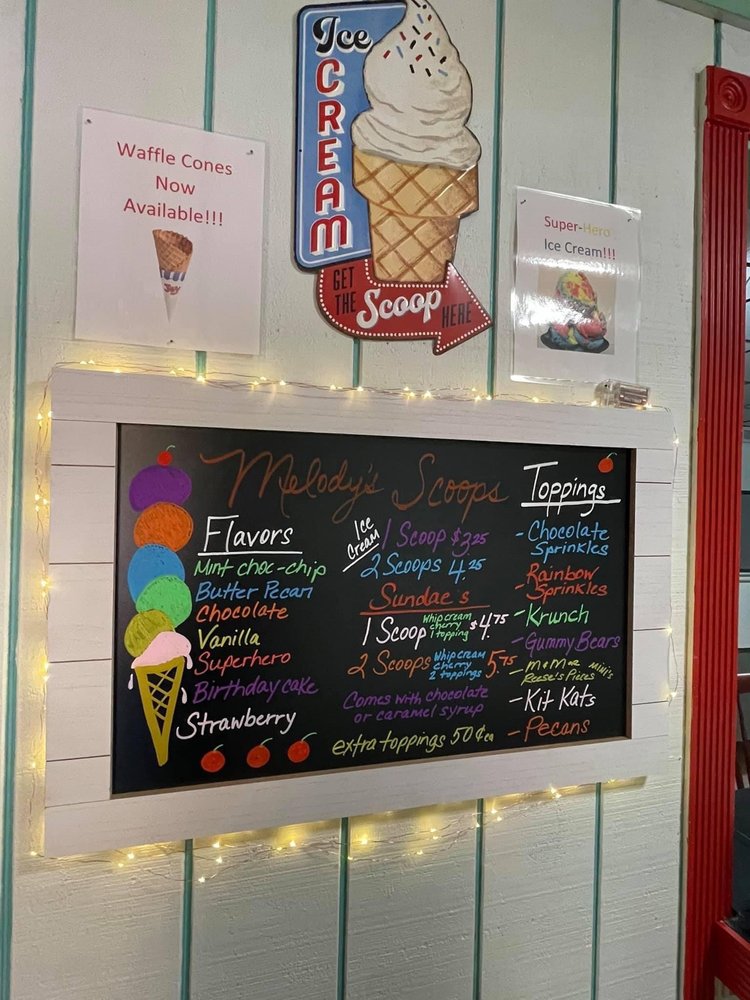 Ice
CREAM
GET
THE
Scoop
HERE
Waffle Cones
Now
Available!!!
Joy
Super-Hero
Ice Cream!!!
Melody's Scoops
Flavors
Mint choc-chip
Butter Pecan
Chocolate
Vanilla
Superhero
Birthday cake
Strawberry
Ice
Cream
1 Scoop $3.25
2 Scoops 4.25
Sundae's
1 Scoop whip cream cherry 1 topping $4.75
2 Scoops whip cream cherry 2 toppings 5.75
Comes with chocolate
or caramel syrup
extra toppings 50¢ ea
Toppings
- Chocolate
Sprinkles
- Rainbow
Sprinkles
- Krunch
- Gummy Bears
- M&M mini's
Reese's Pieces
- Kit Kats
- Pecans